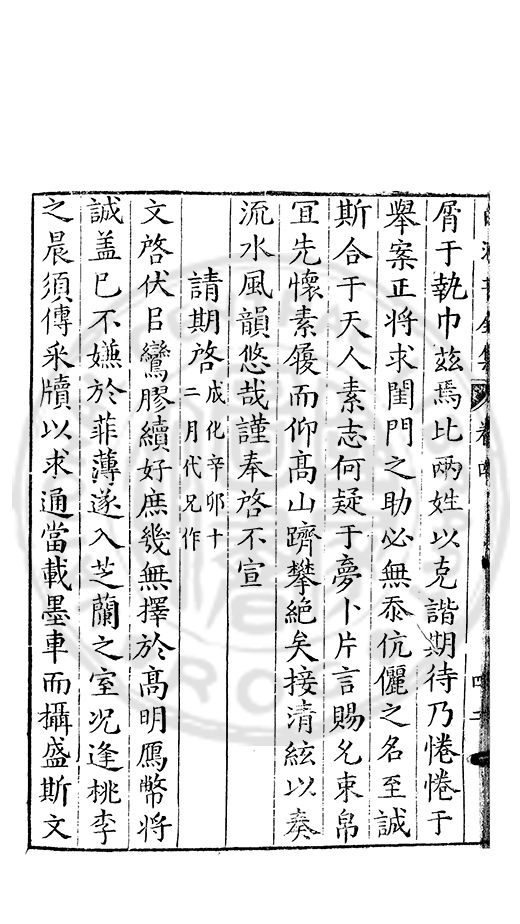 屑于執巾茲焉比兩姓以克諧期待乃惓惓于
舉案正將求閨門之助必無忝伉儷之名至誠
斯合于天人素志何疑于夢卜片言賜允束帛
冝先懷素履而仰髙山躋攀絶矣接清絃以奏
流水風韻悠哉謹奉啓不宣
請期啓
成化辛卯十
二月代兄作
文啓伏㠯鸞膠續好庶幾無擇於髙明鴈幣將
誠盖已不嫌於菲薄遂入芝蘭之室况逢桃李
之晨須傳采牘以求通當載墨車而攝盛斯文